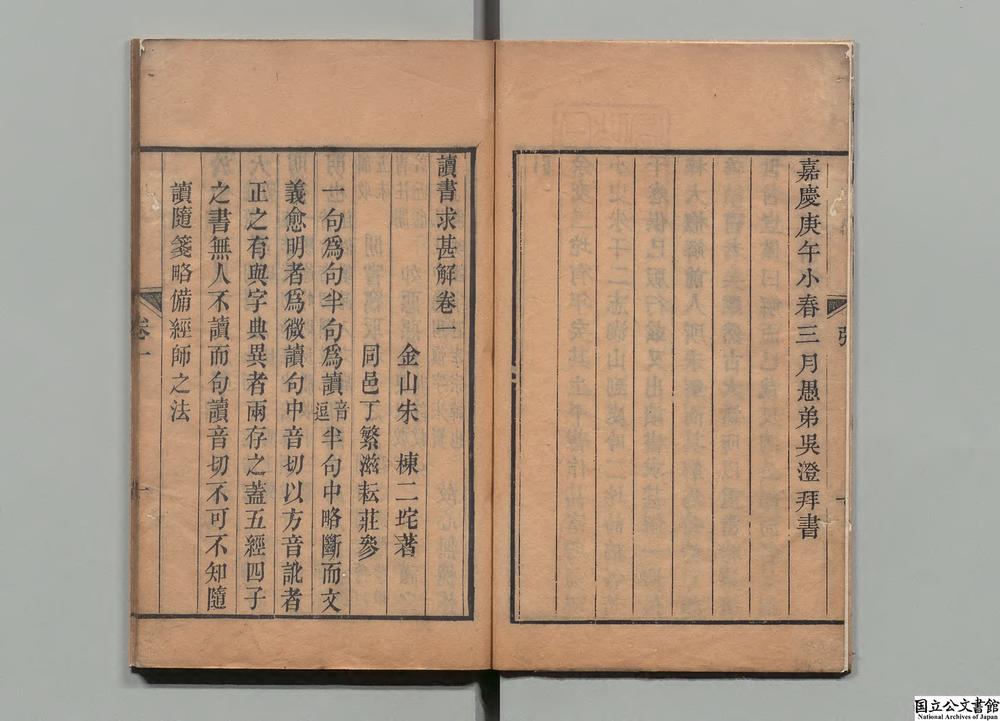 嘉慶庚午小春三月愚弟吳澄拜書
讀書求甚解卷一
金山朱　棟二垞著
同邑丁繁滋耘莊參
一句爲句半句爲讀音逗半句中略斷而文
義愈明者爲微讀句中音切以方音訛者
正之有與字典異者兩存之蓋五經四子
之書無人不讀而句讀音切不可不知隨
讀隨箋略備經師之法
卷一
国立公文書館
National Archives of Japan